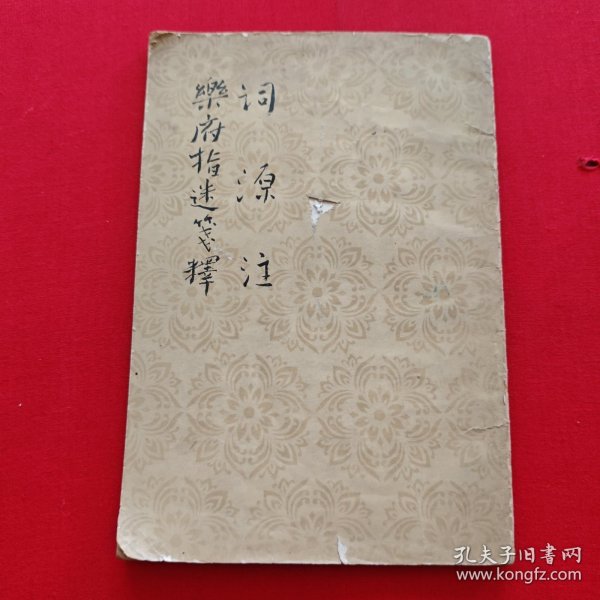 词源注
樂府指迷箋釋
孔夫子旧书网
www.kongfz.com